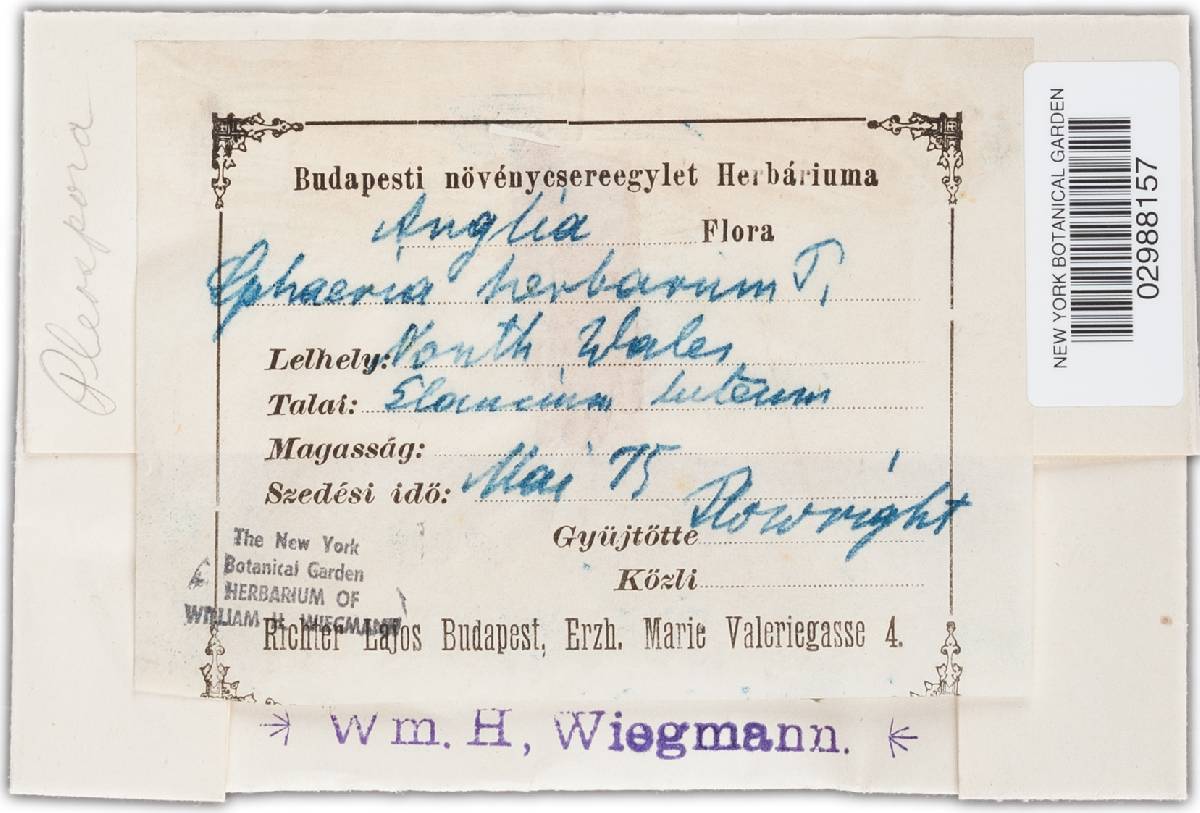 Pleospora
Budapesti növénycsereegylet Herbáriuma
Anglia Flora
Sphaeria herbarum F.
Lelhely: North Wales
Talai: Glaucium luteum
Magasság:
Szedési idő: Mai 75
Gyüjtötte Plowright
Közli
The New York
Botanical Garden
HERBARIUM OF
WILLIAM H. WIEGMANN
Richter Lajos Budapest, Erzh. Marie Valeriegasse 4.
Wm. H, Wiegmann.
NEW YORK BOTANICAL GARDEN
02988157